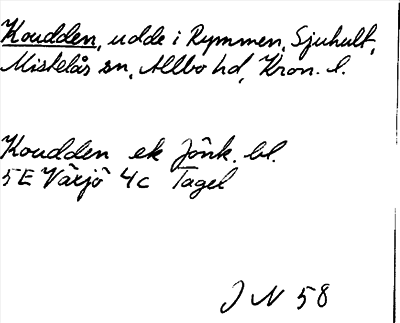 Koudden, udde i Rymmen, Sjuhult,
Mistelås sn, Allbo hd, Kron. l.
Koudden ek Jönk. bl.
5E Växjö 4c Tagel
J N 58